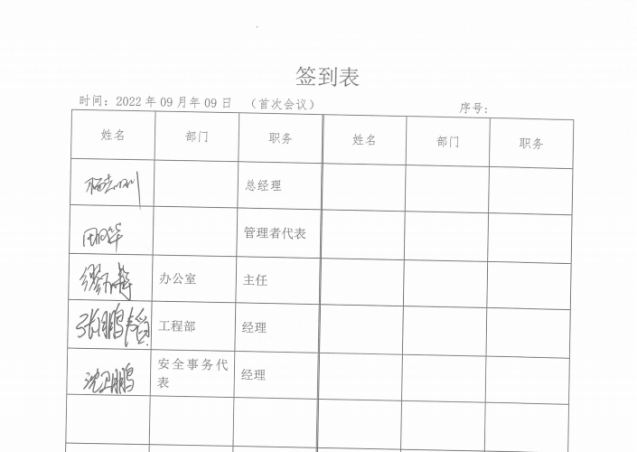 签到表
时间：2022 年 09 月年 09 日 （首次会议） 序号:
姓名 部门 职务 姓名 部门 职务
总经理
管理者代表
办公室 主任
工程部 经理
安全事务代
表 经理
沈卫鹏